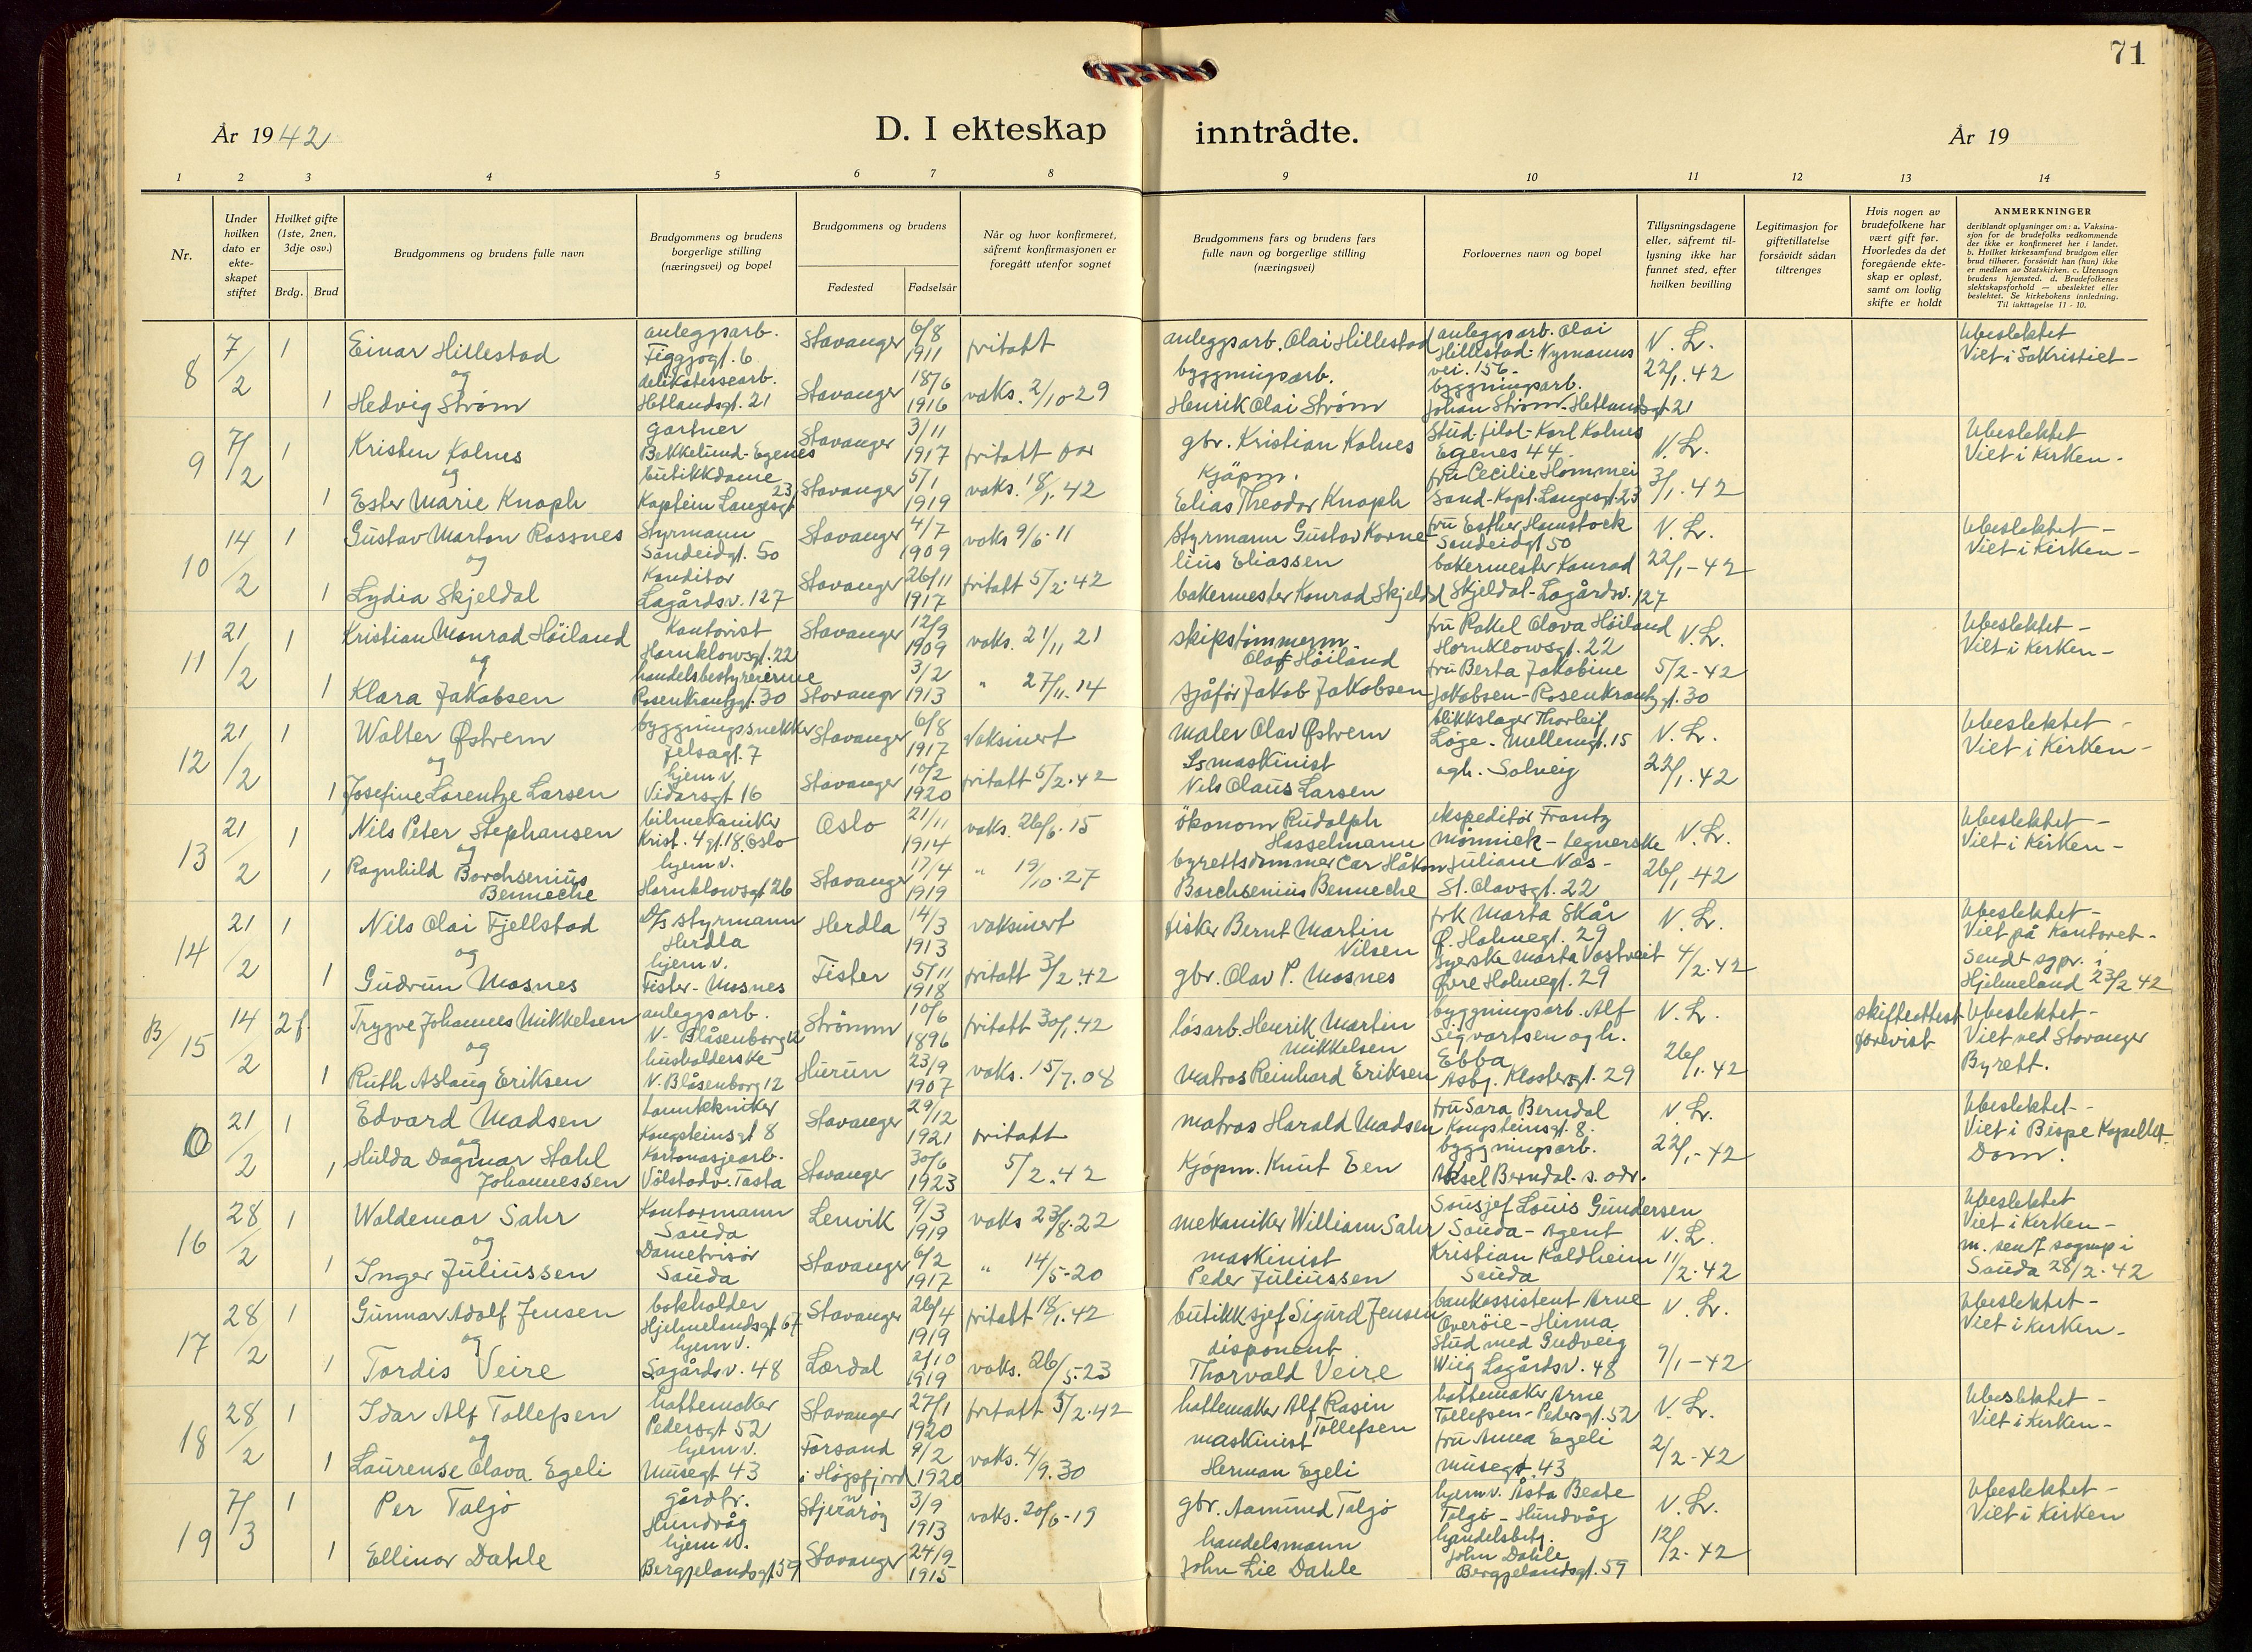 71
År 1942
D. I ekteskap
inntrådte.
År 19
1 2 3 4 5 6 7 8
9 10 11 12 13 14
Nr.
Under hvilken dato er ekteskapet stiftet
Hvilket gifte (1ste, 2nen, 3dje osv.)
Brdg. Brud
Brudgommens og brudens fulle navn
Brudgommens og brudens borgerlige stilling (næringsvei) og bopel
Brudgommens og brudens
Fødested Fødselsår
Når og hvor konfirmeret, såfremt konfirmasjonen er foregått utenfor sognet
Brudgommens fars og brudens fars fulle navn og borgerlige stilling (næringsvei)
Forlovernes navn og bopel
Tillysningsdagene eller, såfremt tillysning ikke har funnet sted, efter hvilken bevilling
Legitimasjon for giftetillatelse forsåvidt sådan tiltrenges
Hvis nogen av brudefolkene har vært gift før. Hvorledes da det foregående ekteskap er opløst, samt om lovlig skifte er holdt
ANMERKNINGER
deriblandt oplysninger om: a. Vaksinasjon for de brudefolks vedkommende der ikke er konfirmeret her i landet. b. Hvilket kirkesamfund brudgom eller brud tilhører, forsåvidt han (hun) ikke er medlem av Statskirken. c. Utensogn brudens hjemsted. d. Brudefolkenes slektskapsforhold — ubeslektet eller beslektet. Se kirkebokens innledning. Til iakttagelse 11 - 10.
8 7/2 1 Einar Hillestad anleggsarb. Figgjogt. 6 Stavanger 6/8 1911 fritatt anleggsarb. Olai Hillestad anleggsarb. Olai Hillestad - Nymanns vei. 156 - V. L. 22/1. 42 Ubeslektet Viet i Sakristiet -
og
1 Hedvig Strøm delikatessearb. Hetlandsgt. 21 Stavanger 18/6 1916 vaks. 2/10-29 byggningsarb. Henrik Olai Strøm byggningsarb. Johan Strøm - Hetlandsgt 21
9 7/2 1 Kristen Kolnes gartner Bekkelund - Egenes Stavanger 3/11 1917 fritatt for gbr. Kristian Kolnes Stud. filol - Karl Kolnes Egenes 44. V. L. 3/1. 42 Ubeslektet Viet i Kirken -
og
1 Ester Marie Knoph butikkdame Kaptein Langesgt 23 Stavanger 5/1 1919 vaks. 18/1. 42 Kjøpm. Elias Theodor Knoph fru Cecilie Hommei Sand - Kapt. Langesgt. 23
10 14/2 1 Gustav Marton Rossnes Styrmann Sandeidgt. 50 Stavanger 4/7 1909 vaks 9/6. 11 Styrmann Gustav Kornelius Eliassen fru Esther Hamstock Sandeidgt 50 V. L. 22/1 - 42 Ubeslektet - Viet i Kirken -
og
1 Lydia Skjeldal Konditor Lagårdsv. 127 Stavanger 26/11 1917 fritatt 5/2. 42 bakermester Konrad Skjeldal bakermester Konrad Skjeldal - Lagårdsv. 127
11 21/2 1 Kristian Monrad Höiland Kontorist Hornklowsgt. 22 Stavanger 12/9 1909 vaks. 21/11 21 skipstimmerm. Olaf Höiland fru Rakel Olava Høiland Hornklowsgt. 22 V. L. 5/2 - 42 Ubeslektet - Viet i Kirken -
og
1 Klara Jakobsen handelsbestyrerinne Rosenkrantzgt. 30 Stavanger 3/2 1913 " 27/11. 14 sjåför Jakob Jakobsen fru Berta Jakobine Jakobsen - Rosenkrantzgt. 30
12 21/2 1 Walter Østrem byggningssnekker Jelsagt. 7 Stavanger 6/8 1917 Vaksinert Maler Olav Østrem blikkslager Thorleif Løge - Møllemgt. 15 V. L. 22/1. 42 Ubeslektet - Viet i Kirken -
og
1 Josefine Lorentze Larsen hjem v. Vidarsgt 16 Stavanger 10/2 1920 fritatt 5/2. 42 maskinist Nils Olaus Larsen og h. Solveig
13 21/2 1 Nils Peter Stephansen bilmekaniker Krist. 4 gt. 18. Oslo Oslo 21/11 1914 vaks. 26/6. 15 økonom Rudolph Hasselmann ekspeditör Frantz Mönnick - tegnerske V. L. 26/1 - 42 Ubeslektet - Viet i Kirken -
og
1 Ragnhild Borchsenius Benneche hjem v. Hornklowsgt 26 Stavanger 17/4 1919 " 19/10. 27 byrettsdommer Car Håkon Borchsenius Benneche Juliane Næs - St. Olavsgt. 22
14 21/2 1 Nils Olai Fjellstad D/s styrmann Herdla Herdla 14/3 1913 vaksinert fisker Bernt Martin Nilsen frk Marta Skår Ø. Holmegt. 29 V. L. 4/2. 42 Ubeslektet - Viet på Kontoret -
og
1 Gudrun Mosnes hjem v. Fister - Mosnes Fister 5/11 1918 fritatt 3/2. 42 gbr. Olav P. Mosnes syerske Marta Vastveit Øvre Holmegt. 29 Sendt sgpr. i Hjelmeland 23/2 42
B/15 14/2 2 f. Trygve Johannes Mikkelsen anleggsarb. N. Blåsenborg 12 Strömm 10/6 1896 fritatt 30/1. 42 lösarb. Henrik Martin Mikkelsen byggningsarb. Alf Sigvartsen og h. Ebba V. L. 26/1. 42 skifteattest forevist Ubeslektet - Viet ved Stavanger Byrett.
og
1 Ruth Aslaug Eriksen husholderske N. Blåsenborg 12 Hurum 23/9 1907 vaks. 15/7. 08 Matros Reinhard Eriksen Asbj. Klostersgt. 29
0 21/2 1 Edvard Madsen tanntekniker Kongsteinsgt 8 Stavanger 29/12 1921 fritatt matros Harald Madsen fru Sara Berndal Kongsteinsgt. 8. V. L. 22/1 - 42 Ubeslektet - Viet i Bispe Kapellet - Dom.
og
1 Hulda Dagmar Stahl Johannessen Kartonasjearb. Völstadv. Tasta Stavanger 30/6 1923 5/2. 42 Kjöpm. Knut Een byggningsarb. Aksel Berndal - s. adr.
16 28/2 1 Waldemar Sahr Kontormann Sauda Lenvik 9/3 1919 vaks 23/8. 22 mekaniker William Sahr Sousjef Louis Gundersen Sauda - Agent V. L. 11/2. 42 Ubeslektet Viet i Kirken -
og
1 Inger Juliussen Damefrisör Sauda Stavanger 6/2 1917 " 14/5-20 maskinist Peder Juliussen Kristian Kaldheim Sauda m. sendt sognep i Sauda 28/2. 42
17 28/2 1 Gunnar Adolf Jensen bokholder Hjelmelandsgt 67 Stavanger 26/4 1919 fritatt 18/1. 42 butikksjef Sigurd Jensen bankassistent Arne Overöie - Hinna V. L. 9/1 - 42 Ubeslektet - Viet i Kirken -
og
1 Tordis Veire hjem v. Lagårdsv. 48 Lærdal 2/10 1919 vaks. 26/5-23 disponent Thorvald Veire Stud med Gudveig Wiig Lagårdsv. 48
18 28/2 1 Idar Alf Tollefsen hattemaker Pedersgt 52 Stavanger 27/1 1920 fritatt 5/2. 42 hattemaker Alf Rasin Tollefsen hattemaker Arne Tollefsen - Pedersgt. 52 V. L. 2/2 - 42 Ubeslektet - Viet i Kirken -
og
1 Laurense Olava Egeli hjem v. Musegt 43 Forsand i Högsfjord 9/2 1920 vaks. 4/9. 30 maskinist Herman Egeli fru Anna Egeli Musegt. 43
19 7/3 1 Per Talgö gårdbr. Hundvåg Stjernaröy 3/9 1913 vaks. 20/6 - 19 gbr. Aamund Talgö hjem v. Åsta Beate Talgö - Hundvåg V. L. 12/2. 42 Ubeslektet - Viet i Kirken
1 Ellinor Dahle hjem v. Bergjelandsgt 59 Stavanger 24/9 1915 handelsmann John Lie Dahle handelsbetj. John Dahle Bergjelandsgt. 59